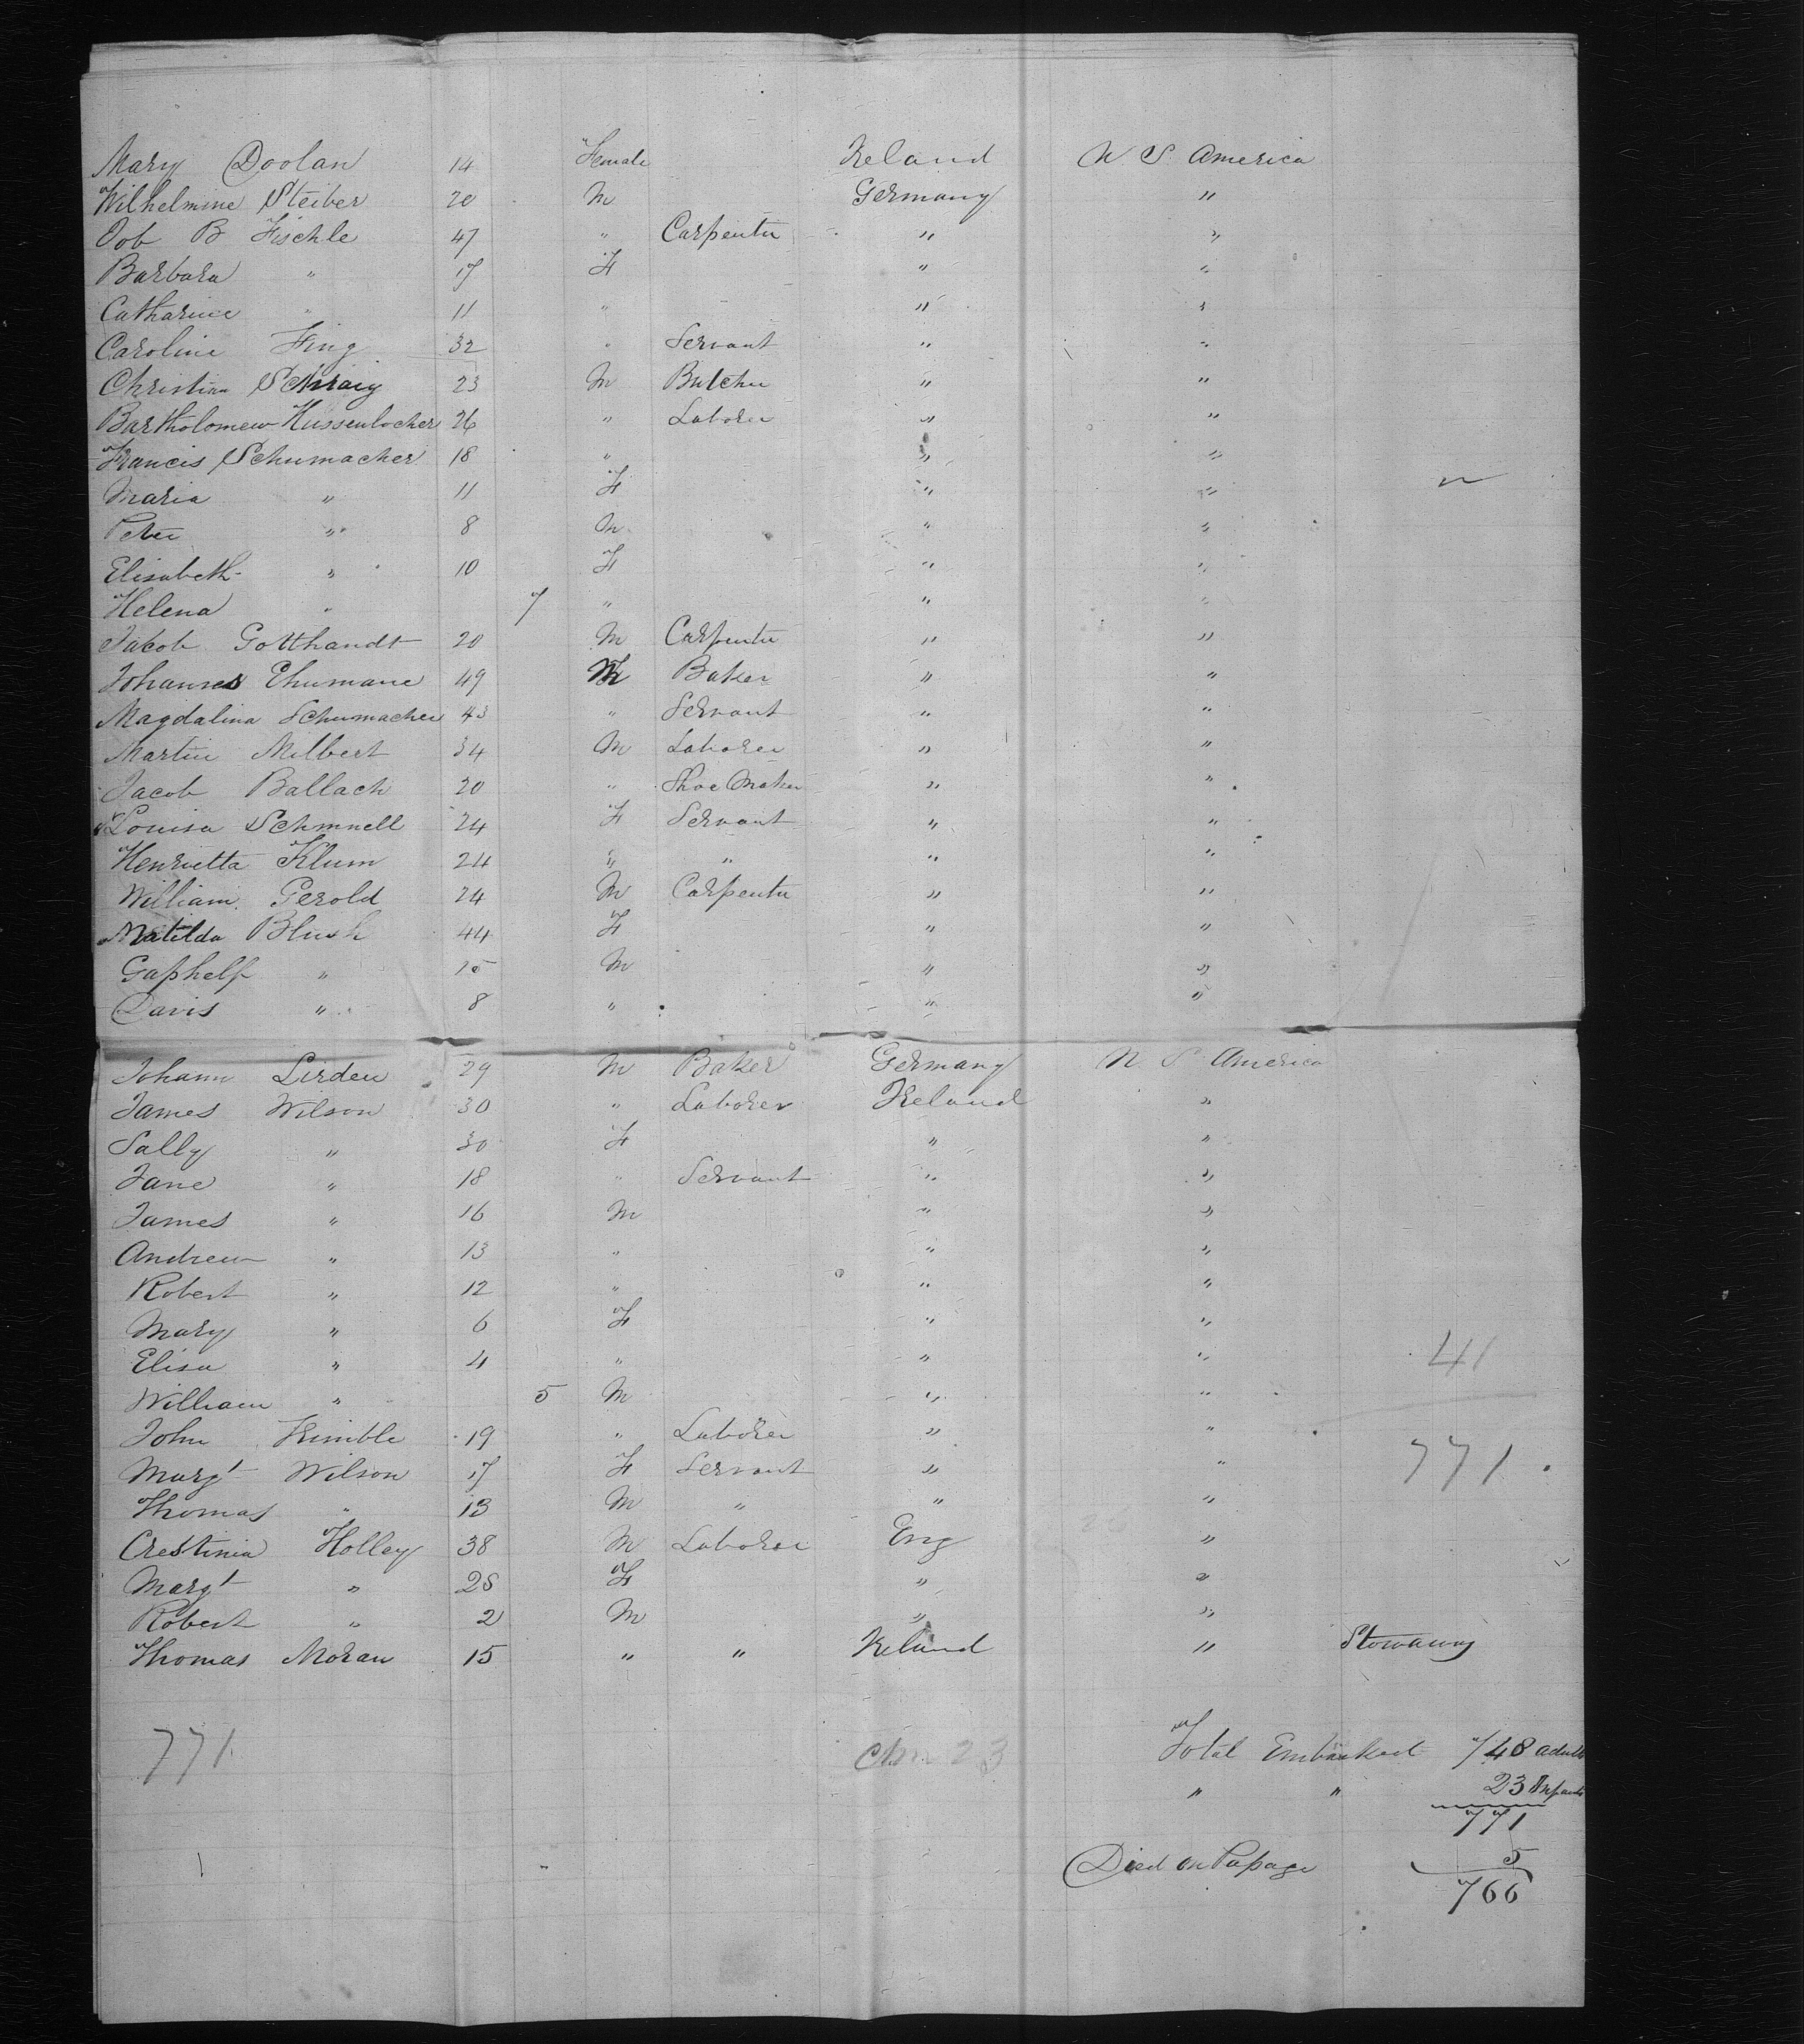 Mary Doolan 14 Female Ireland U S America
Wilhelmine Steiber 20 M Germany "
Job B Fischle 47 " Carpenter " "
Barbara " 17 F " "
Catharine " 11 " " "
Caroline Fing 32 " Servant " "
Christian Schraig 23 M Butcher " "
Bartholomew Hussenlocher 26 " Laborer " "
Francis Schumacher 18 " " "
Maria " 11 F " "
Peter " 8 M " "
Elisabeth " 10 F " "
Helena " 7 " " "
Jacob Gotthandt 20 M Carpenter " "
Johannes Ehumane 49 M Baker " "
Magdalina Schumacher 43 " Servant " "
Martin Milbert 34 M Laborer " "
Jacob Ballach 20 " Shoe Maker " "
Louisa Schmnell 24 F Servant " "
Henrietta Klum 24 " " " "
William Gerold 24 M Carpenter " "
Matilda Blush 44 F " "
Gaphelf " 15 M " "
Davis " 8 " " "
Johann Lirden 29 M Baker Germany U S America
James Wilson 30 " Laborer Ireland "
Sally " 30 F " "
Jane " 18 " Servant " "
James " 16 M " "
Andrew " 13 " " "
Robert " 12 " " "
Mary " 6 F " "
Elisa " 4 " " " 41
William " 5 M " "
John Kimble 19 " Laborer " "
Margt Wilson 17 F Servant " " 771
Thomas " 13 M " " "
Crestinia Holley 38 M Laborer Eng "
Margt " 28 F " "
Robert " 2 M " "
Thomas Moran 15 " " Ireland " Stowaway
771 Chn 23 Total Embarked 748 adults
" " 23 Infants
771
Died on Passage 5
766